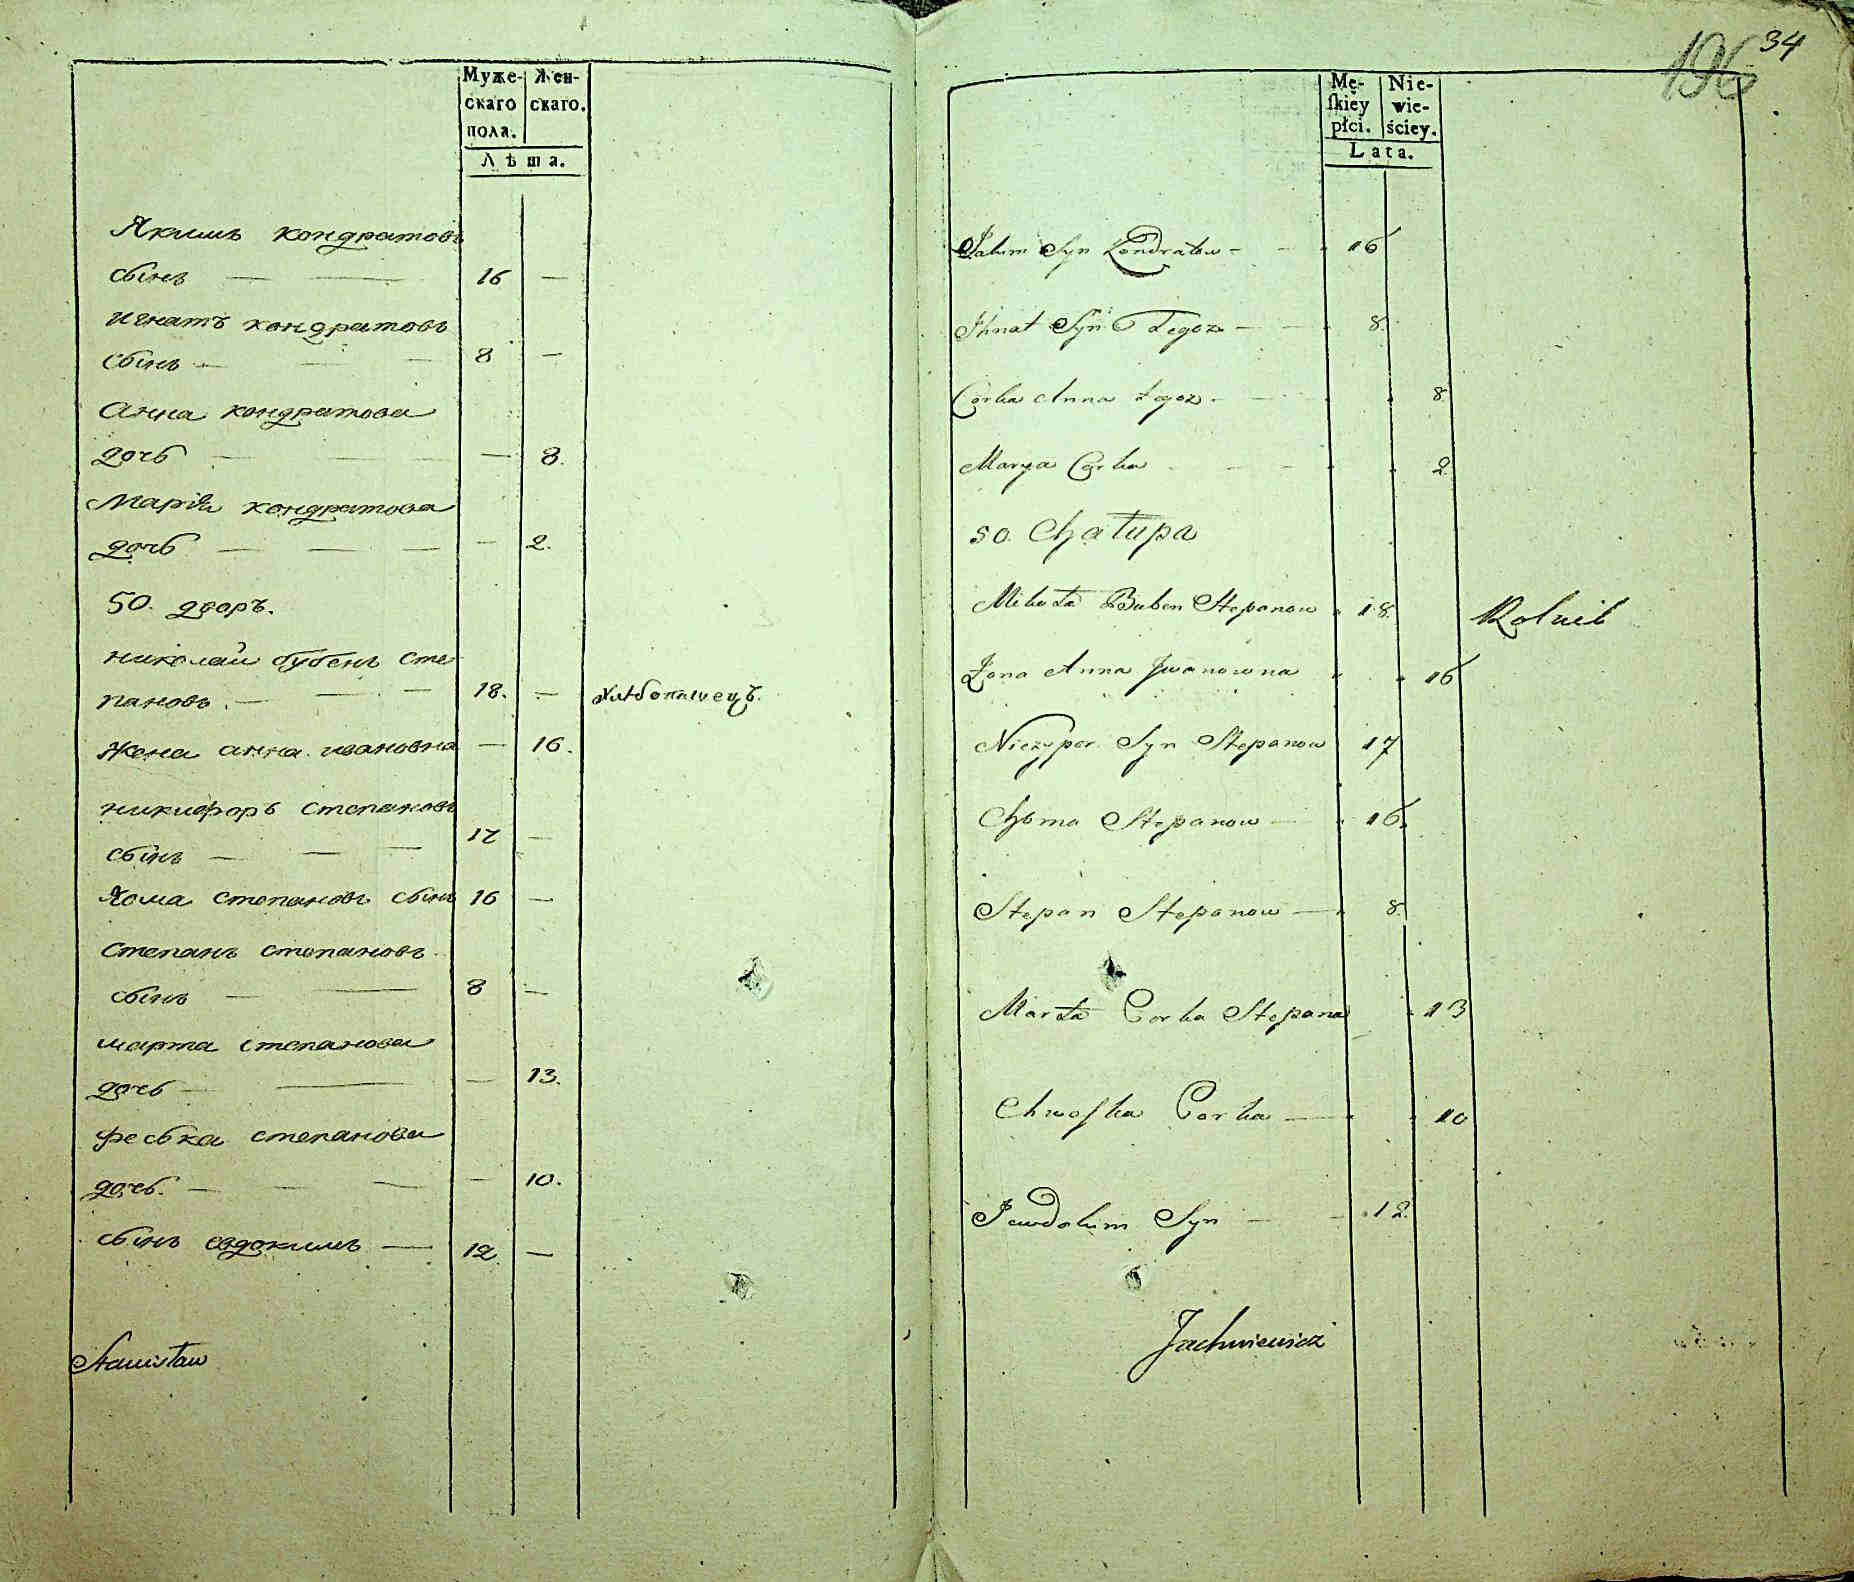 Муже-
скаго
пола.
Жен-
скаго.
Лѣта.
Якимъ кондратовъ
сынъ — — 16 —
игнатъ кондратовъ
сынъ — — — 8 —
анна кондратова
дочь — — — 8.
Марія кондратова
дочь — — — — 2.
50. дворъ.
николай бубенъ сте
пановъ. — — — 18. — хлѣбопашецъ.
жена анна ивановна — 16.
никифоръ степановъ
сынъ — — — 17 —
Хома степановъ сынъ 16 —
степанъ степановъ
сынъ — — 8 —
марта степанова
дочь — — — 13.
феська степанова
дочь. — — — — 10.
сынъ евдокимъ — 12 —
Stanisław
34
196
Mę-
skiéy
płci.
Nie-
wie-
ściey.
Lata.
Jakim Syn Kondratow — 16
Ihnat Syn Tegoz — 8.
Corka Anna Tegoz — 8
Marya Corka — 2
50. Chałupa
Mikoła Buben Stepanow 18. Rolnik
Zona Anna Jwanowna 16
Niczypor Syn Stepanow 17
Choma Stepanow — 16.
Stepan Stepanow — 8.
Marta Corka Stepana 13
Chwoſka Corka — 10
Jewdokim Syn — 12.
Jachniewicz